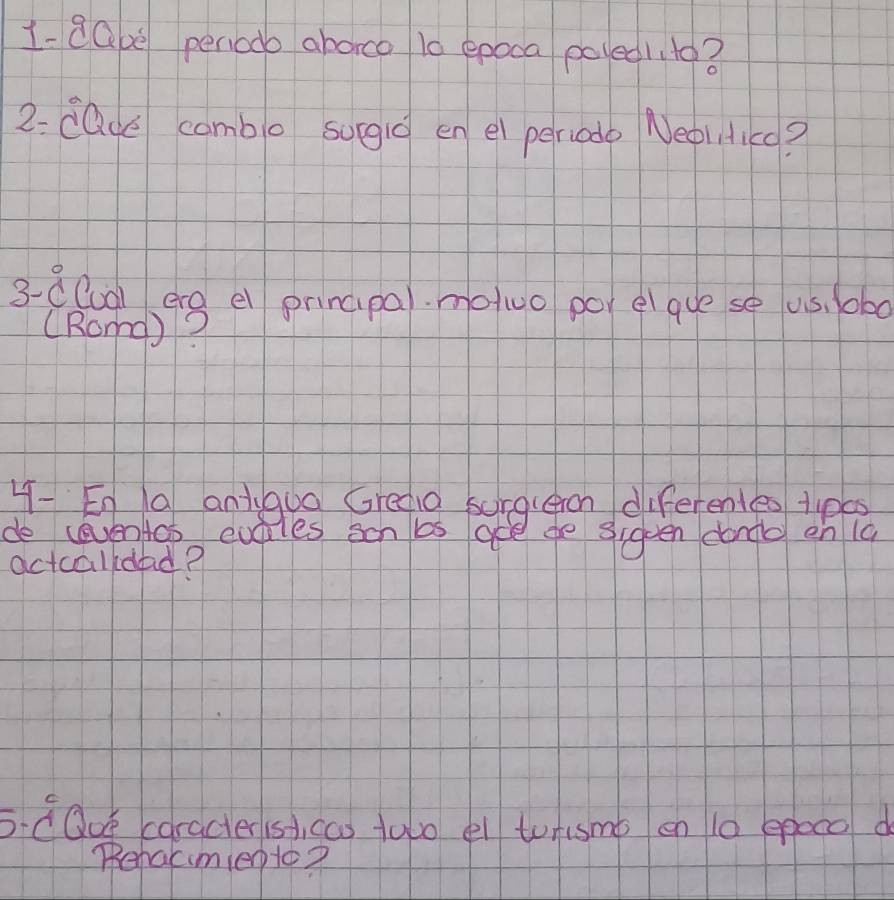 1- ¿Qué periodo abarca la epoca paleolita?
2- ¿Qué cambio surgió en el periodo Neolitico?
3- ¿Cual era el principal motivo por el que se visitaba
(Roma)?
4- En la antigua Grecia surgieron diferentes tipos
de eventos cuales son los que se siguen dando en la
actualidad?
5- ¿Qué caracteristicas tuvo el turismo en la epoca d
Renacimiento?